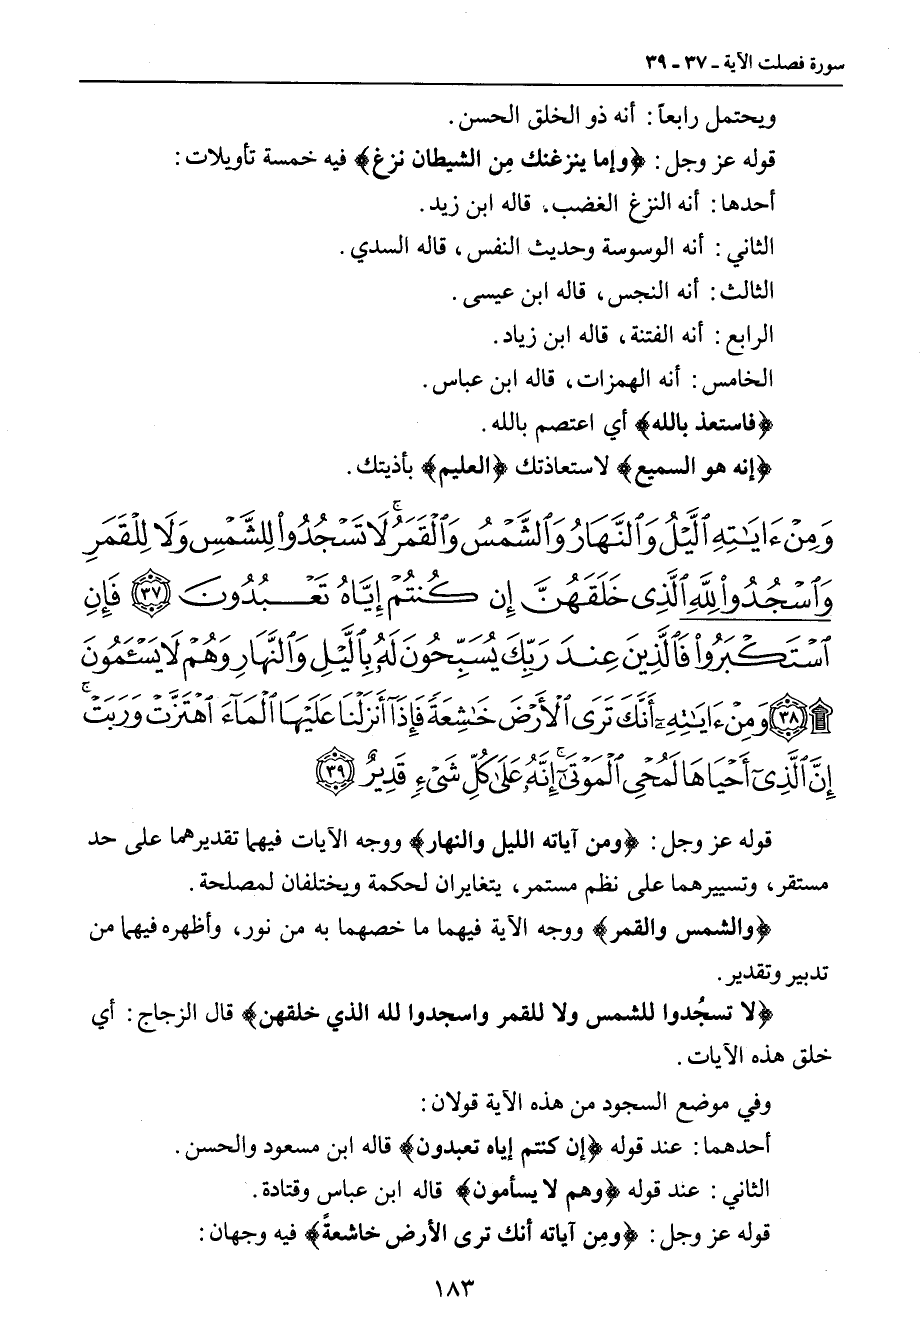 سورة فصلت الآية - ٣٧ - ٣٩
ويحتمل رابعاً: أنه ذو الخلق الحسن.
قوله عز وجل: ﴿وإما ينزغنك مِن الشيطان نزغ﴾ فيه خمسة تأويلات:
أحدها: أنه النزغ الغضب، قاله ابن زيد.
الثاني: أنه الوسوسة وحديث النفس، قاله السدي.
الثالث: أنه النجس، قاله ابن عيسى.
الرابع: أنه الفتنة، قاله ابن زياد.
الخامس: أنه الهمزات، قاله ابن عباس.
﴿فاستعذ بالله﴾ أي اعتصم بالله.
﴿إنه هو السميع﴾ لاستعاذتك ﴿العليم﴾ بأذيتك.
وَمِنْ ءَايَٰتِهِ ٱلَّيْلُ وَٱلنَّهَارُ وَٱلشَّمْسُ وَٱلْقَمَرُ ۚ لَا تَسْجُدُوا۟ لِلشَّمْسِ وَلَا لِلْقَمَرِ
وَٱسْجُدُوا۟ لِلَّهِ ٱلَّذِى خَلَقَهُنَّ إِن كُنتُمْ إِيَّاهُ تَعْبُدُونَ ﴿٣٧﴾ فَإِنِ
ٱسْتَكْبَرُوا۟ فَٱلَّذِينَ عِندَ رَبِّكَ يُسَبِّحُونَ لَهُۥ بِٱلَّيْلِ وَٱلنَّهَارِ وَهُمْ لَا يَسْـَٔمُونَ
۩ ﴿٣٨﴾ وَمِنْ ءَايَٰتِهِۦٓ أَنَّكَ تَرَى ٱلْأَرْضَ خَٰشِعَةً فَإِذَآ أَنزَلْنَا عَلَيْهَا ٱلْمَآءَ ٱهْتَزَّتْ وَرَبَتْ ۚ
إِنَّ ٱلَّذِىٓ أَحْيَاهَا لَمُحْىِ ٱلْمَوْتَىٰٓ ۚ إِنَّهُۥ عَلَىٰ كُلِّ شَىْءٍ قَدِيرٌ ﴿٣٩﴾
قوله عز وجل: ﴿ومن آياته الليل والنهار﴾ ووجه الآيات فيهما تقديرهما على حد
مستقر، وتسييرهما على نظم مستمر، يتغايران لحكمة ويختلفان لمصلحة.
﴿والشمس والقمر﴾ ووجه الآية فيهما ما خصهما به من نور، وأظهره فيهما من
تدبير وتقدير.
﴿لا تسجُدوا للشمس ولا للقمر واسجدوا لله الذي خلقهن﴾ قال الزجاج: أي
خلق هذه الآيات.
وفي موضع السجود من هذه الآية قولان:
أحدهما: عند قوله ﴿إن كنتم إياه تعبدون﴾ قاله ابن مسعود والحسن.
الثاني: عند قوله ﴿وهم لا يسأمون﴾ قاله ابن عباس وقتادة.
قوله عز وجل: ﴿ومِن آياته أنك ترى الأرض خاشعةً﴾ فيه وجهان:
١٨٣